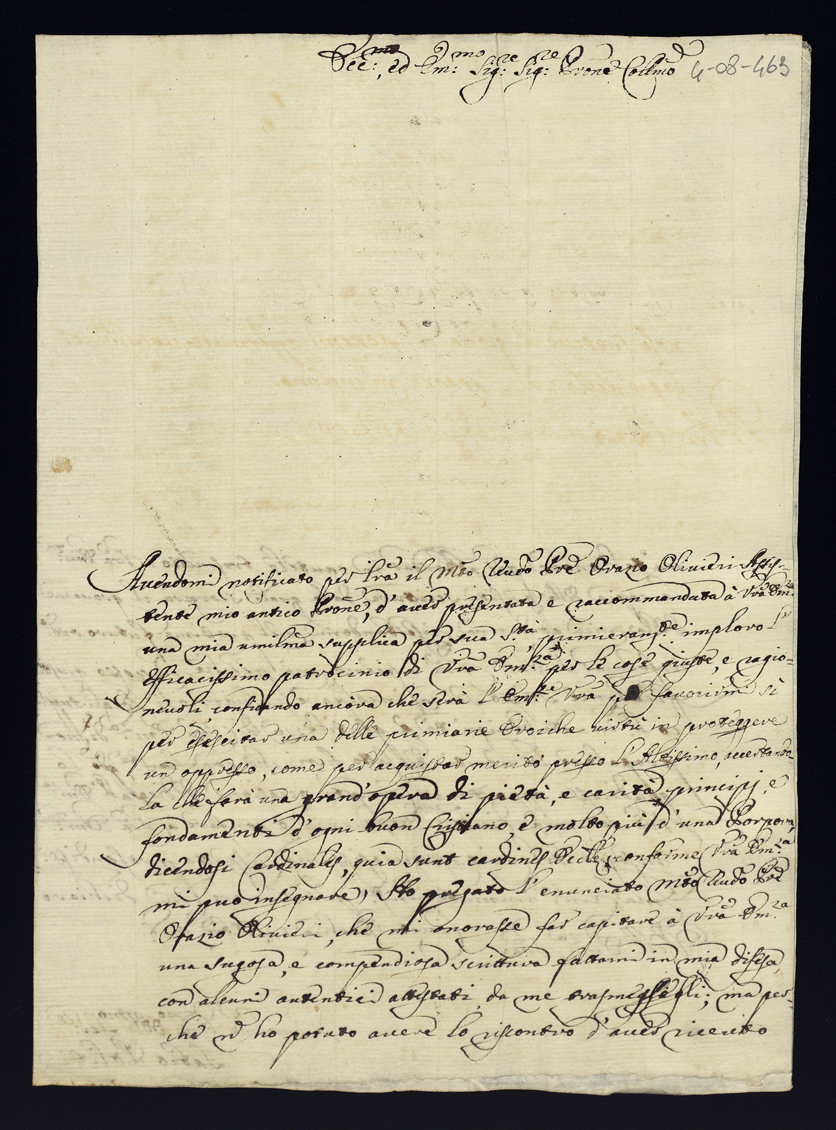 Ecc:mo, ed Em:mo Sig:re Sig:re Prone Collmo 4-08-463
Avendomi notificato per lra il Mto Rndo Pre Orazio Olivieri Assis-
tente mio antico Prone, d'aver presentata e raccommandata à Vra Em:za
una mia umilma supplica per sua Stà, primieramte imploro l'
efficacissimo patrocinio di Vra Em:za per le cose giuste, e ragio-
nevoli, confidando ancòra che serà l'Em:ze Vra per favorirmi sì
per esercitar una delle primiarie Eroiche virtù in proteggere
un oppresso, come per acquistar merito presso l'Altissimo, accertando-
la che farà una grand'opera di pietà, e carità principj, e
fondamenti d'ogni buon Cristiano, e molto più d'una Porpora,
dicendosi Cardinales, quia sunt cardines Eccle, conforme Vra Em:za
mi può insegnare; Ho pregato l'enunciato Mto Rndo Pre
Orazio Olivieri, che mi onorasse far capitare à Vra Em:za
una sugosa, e compendiosa scrittura fattami in mia difesa,
con alcuni autentici attestati da me trasmessigli; ma per-
chè nè ho potuto avere lo riscontro d'aver ricevuto